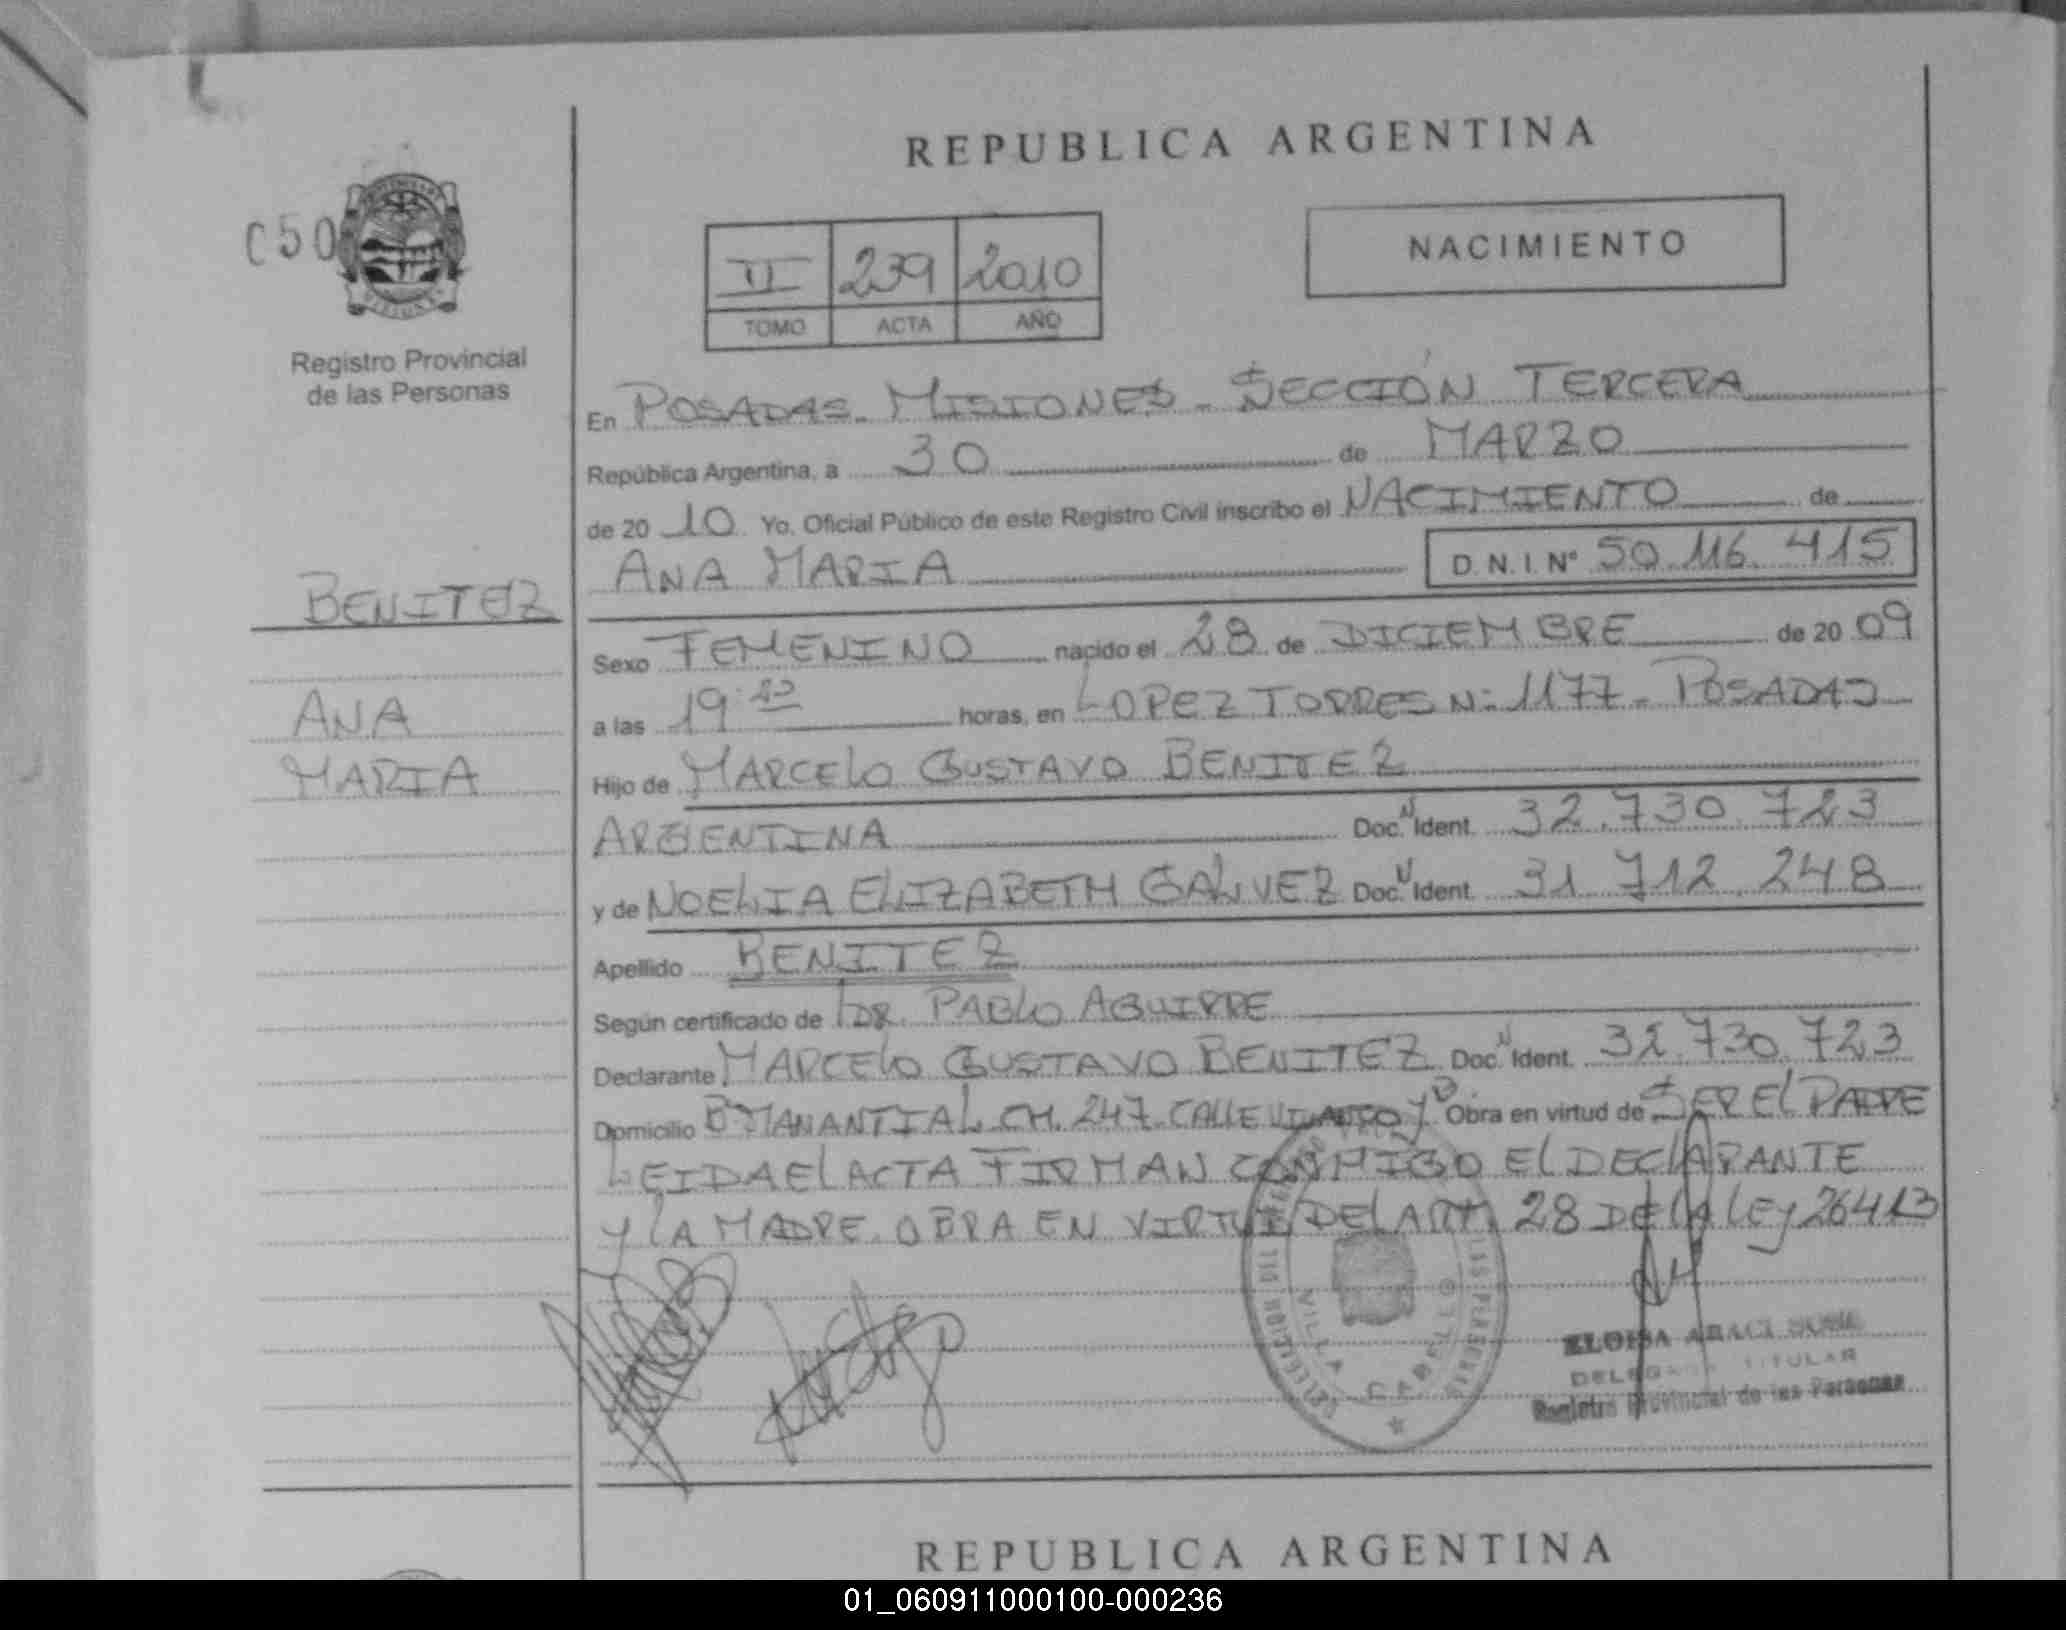 REPUBLICA ARGENTINA
C50
II 239 2010
TOMO ACTA AÑO
NACIMIENTO
Registro Provincial
de las Personas
En POSADAS - MISIONES - SECCIÓN TERCERA
República Argentina, a 30 de MARZO
de 20 10 Yo, Oficial Público de este Registro Civil inscribo el NACIMIENTO de
ANA MARIA D.N.I. Nº 50.116.415
BENITEZ
ANA
MARIA
Sexo FEMENINO nacido el 28 de DICIEMBRE de 20 09
a las 19: horas, en LOPEZ TORRES Nº 1177 - POSADAS
Hijo de MARCELO GUSTAVO BENITEZ
ARGENTINA Doc. N Ident. 32.730.723
y de NOELIA ELIZABETH GALVEZ Doc. N Ident. 31 712.248
Apellido BENITEZ
Según certificado de DR. PABLO AGUIRRE
Declarante MARCELO GUSTAVO BENITEZ Doc. N Ident. 32.730.723
Domicilio Bº MANANTIAL CH. 247 CALLE Obra en virtud de SER EL PADRE
LEIDA EL ACTA FIRMAN CONMIGO EL DECLARANTE
Y LA MADRE. OBRA EN VIRTUD DEL ART. 28 DE LA LEY 26413
VILLA CABELLO
ELOISA ARACI SOSA
DELEGADA TITULAR
Registro Provincial de las Personas
REPUBLICA ARGENTINA
01_060911000100-000236